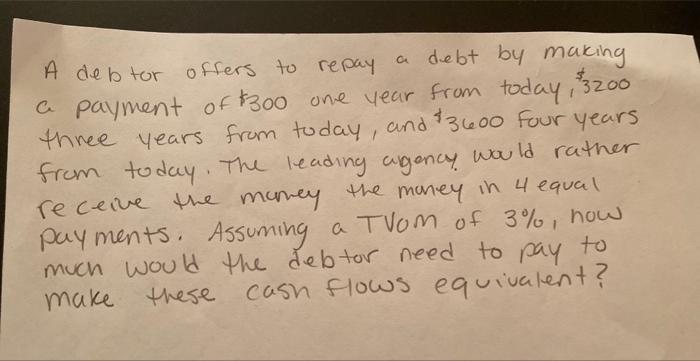 A debtor offers to repay a debt by making
a payment of $300 one year from today, $3200
three years from today, and $3600 four years
from today. The leading agency would rather
receive the money the money in 4 equal
payments. Assuming a TVOM of 3%, how
much would the debtor need to pay to
make these cash flows equivalent?